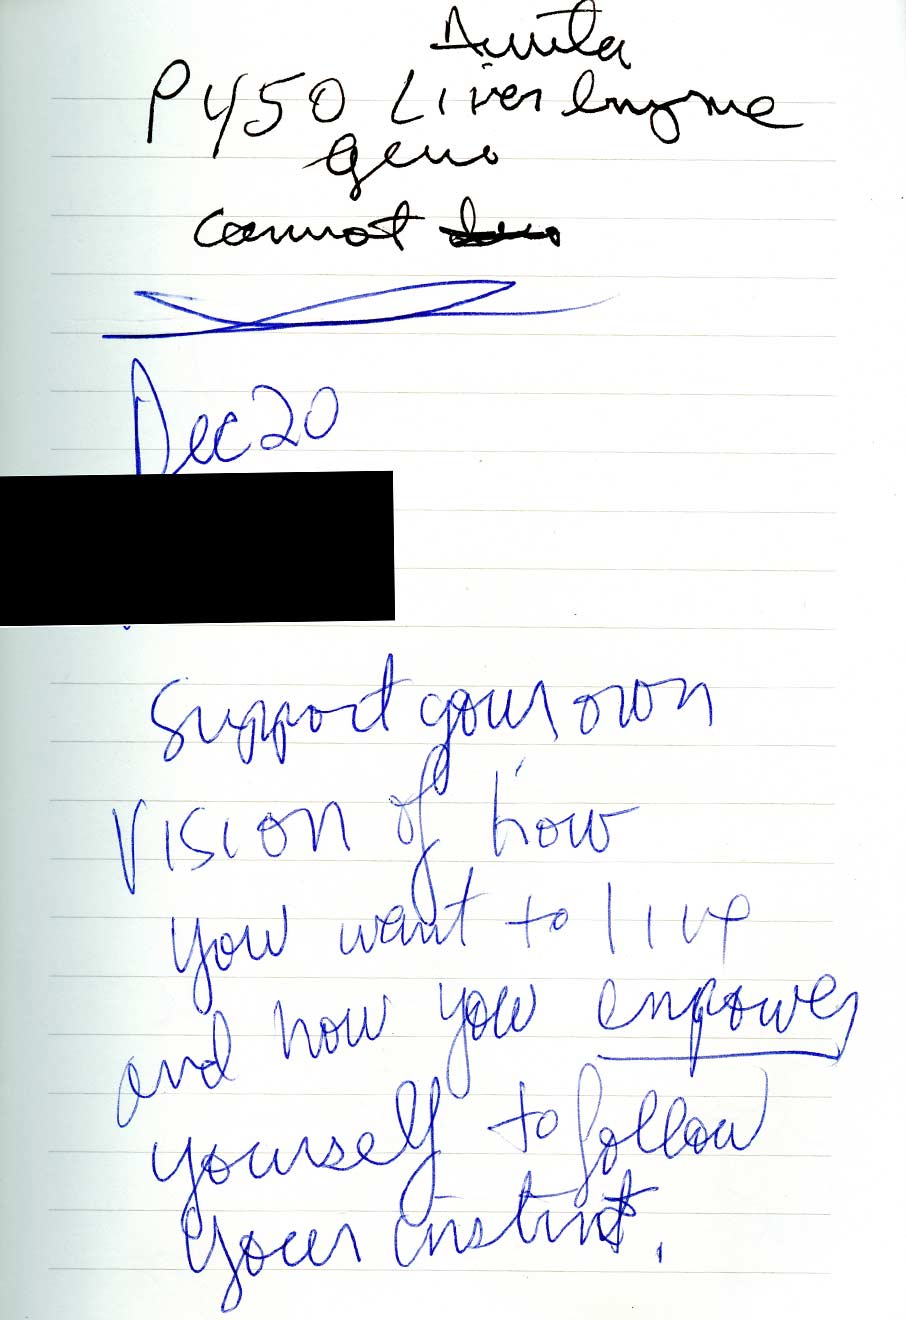 Anita
P450 Liver Enzyme
gene
cannot
Dec 20
Support your own
Vision of how
you want to live
and how you empower
yourself to follow
your instint.